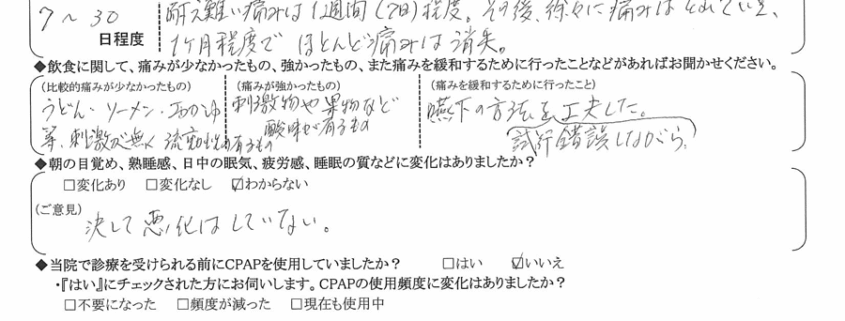 7～30
日程度
耐え難い痛みは1週間(7日)程度。その後、徐々に痛みはとれていき、
1ケ月程度でほとんど痛みは消失。
◆飲食に関して、痛みが少なかったもの、強かったもの、また痛みを緩和するために行ったことなどがあればお聞かせください。
(比較的痛みが少なかったもの)
うどん・ソーメン・おかゆ
等、刺激が無く流動性も有るもの
(痛みが強かったもの)
刺激物や果物など
酸味が有るもの
(痛みを緩和するために行ったこと)
嚥下の方法を工夫した。
試行錯誤しながら。
◆朝の目覚め、熟睡感、日中の眠気、疲労感、睡眠の質などに変化はありましたか？
□変化あり □変化なし ☑わからない
(ご意見)
決して悪化はしていない。
◆当院で診療を受けられる前にCPAPを使用していましたか？ □はい ☑いいえ
・『はい』にチェックされた方にお伺いします。CPAPの使用頻度に変化はありましたか？
□不要になった □頻度が減った □現在も使用中